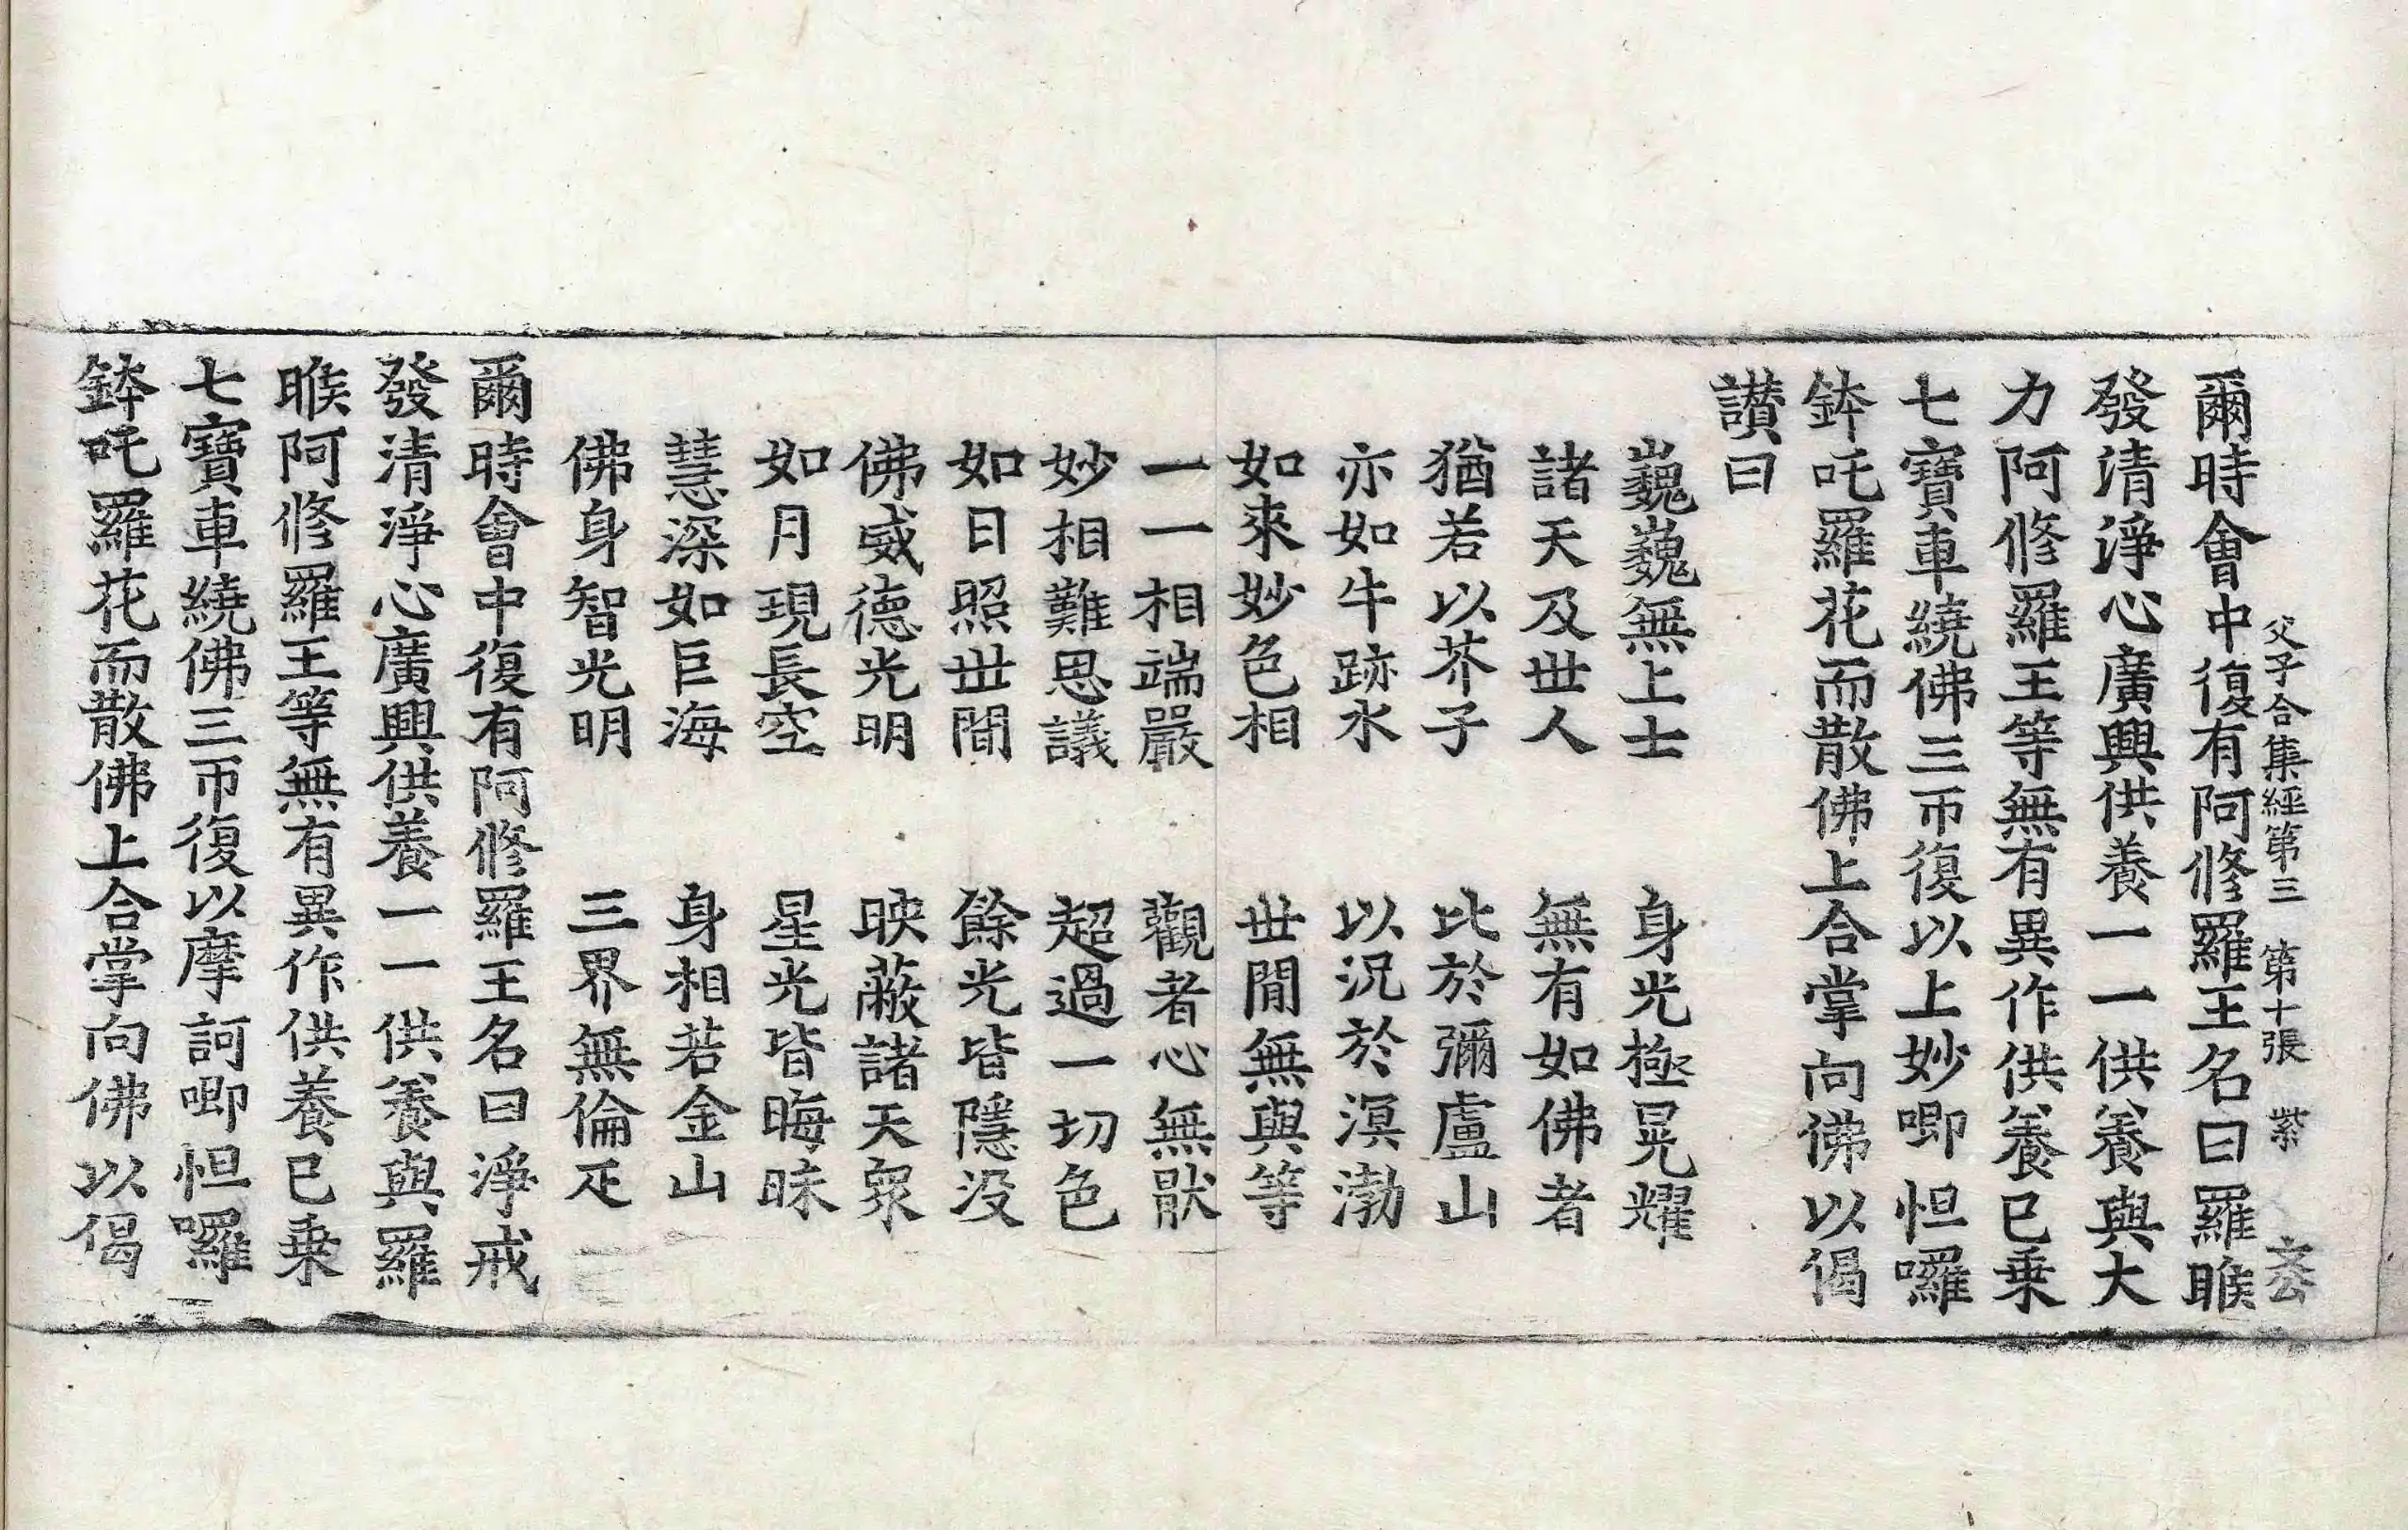 父子合集經第三　第十張　紫　文公
爾時會中復有阿修羅王名曰羅睺
發清淨心廣興供養一一供養與大
力阿修羅王等無有異作供養已乗
七寶車繞佛三帀復以上妙唧怛囉
鉢吒羅花而散佛上合掌向佛以偈
讃曰
巍巍無上士　身光極晃耀
諸天及世人　無有如佛者
猶若以芥子　比於彌盧山
亦如牛跡水　以況於溟渤
如來妙色相　世閒無與等
一一相端嚴　觀者心無猒
妙相難思議　超過一切色
如日照世閒　餘光皆隱没
佛威德光明　映蔽諸天衆
如月現長空　星光皆晦昧
慧深如巨海　身相若金山
佛身智光明　三界無倫疋
爾時會中復有阿修羅王名曰淨戒
發清淨心廣興供養一一供養與羅
睺阿修羅王等無有異作供養已乗
七寶車繞佛三帀復以摩訶唧怛囉
鉢吒羅花而散佛上合掌向佛以偈